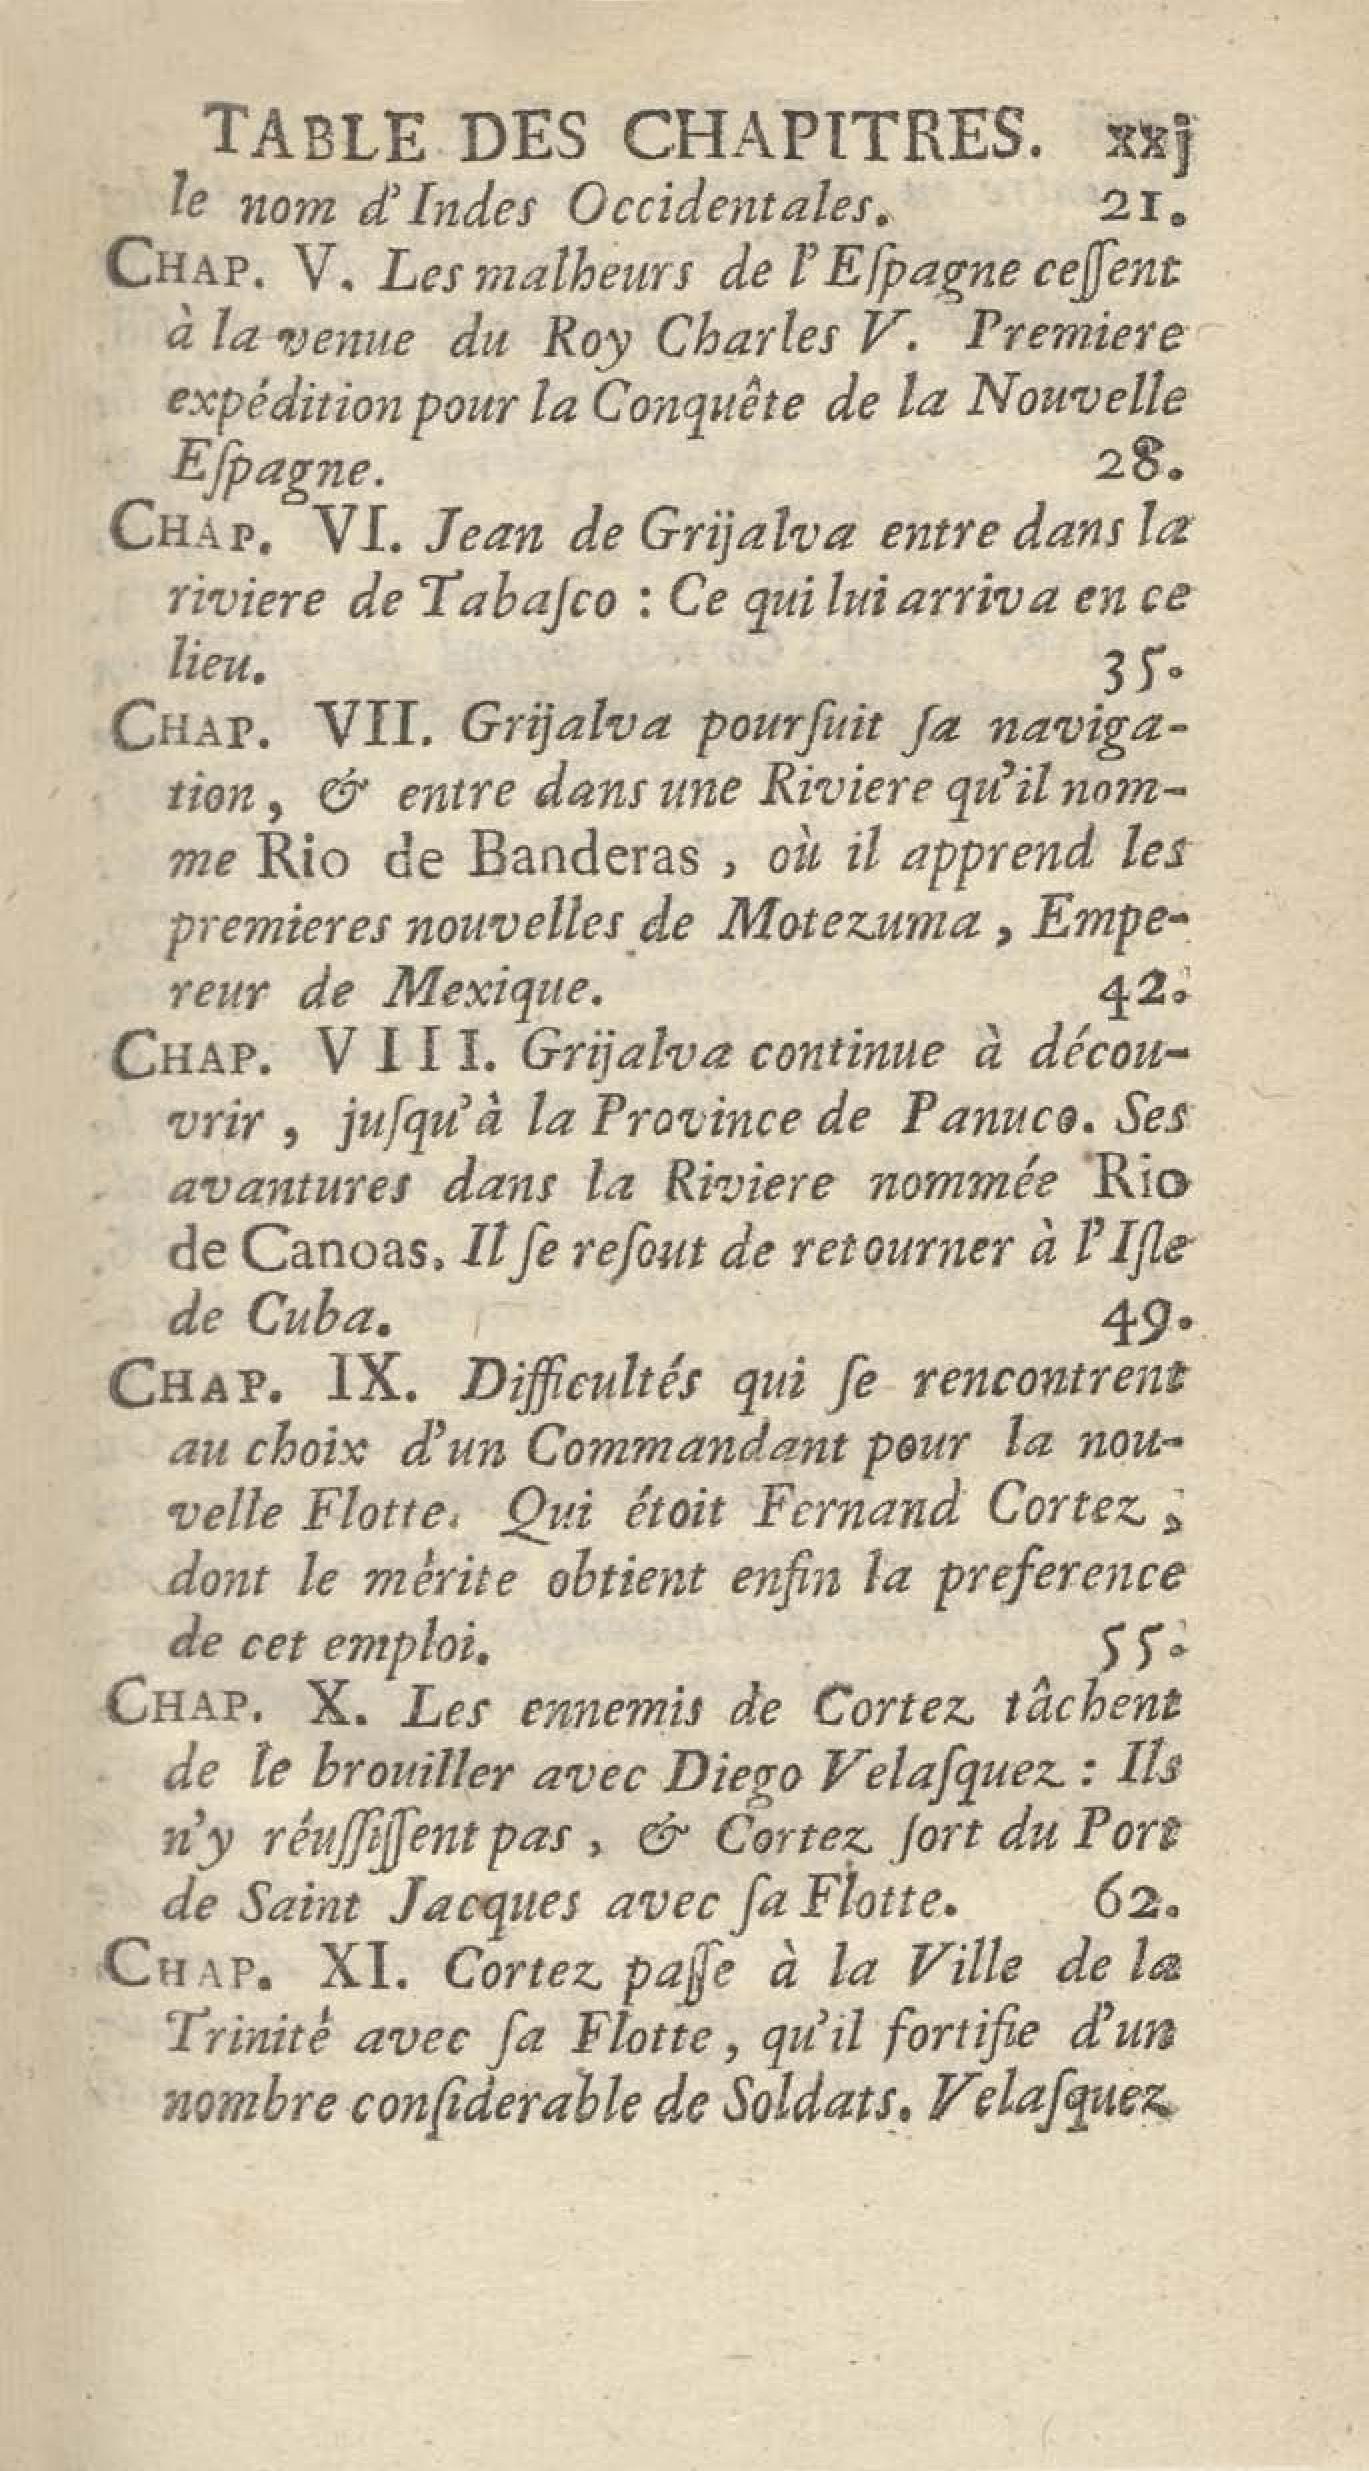 TABLE DES CHAPITRES. xxj
le nom d'Indes Occidentales. 21.
CHAP. V. Les malheurs de l'Eſpagne ceſſent
à la venue du Roy Charles V. Premiere
expédition pour la Conquête de la Nouvelle
Eſpagne. 28.
CHAP. VI. Jean de Grijalva entre dans la
riviere de Tabaſco : Ce qui lui arriva en ce
lieu. 35.
CHAP. VII. Grijalva pourſuit ſa naviga-
tion, & entre dans une Riviere qu'il nom-
me Rio de Banderas, où il apprend les
premieres nouvelles de Motezuma, Empe-
reur de Mexique. 42.
CHAP. VIII. Grijalva continue à décou-
vrir, juſqu'à la Province de Panuco. Ses
avantures dans la Riviere nommée Rio
de Canoas. Il ſe reſout de retourner à l'Iſle
de Cuba. 49.
CHAP. IX. Difficultés qui ſe rencontrent
au choix d'un Commandant pour la nou-
velle Flotte. Qui étoit Fernand Cortez,
dont le mérite obtient enfin la preference
de cet emploi. 55.
CHAP. X. Les ennemis de Cortez tâchent
de le brouiller avec Diego Velaſquez : Ils
n'y réuſſiſſent pas, & Cortez ſort du Port
de Saint Jacques avec ſa Flotte. 62.
CHAP. XI. Cortez paſſe à la Ville de la
Trinité avec ſa Flotte, qu'il fortifie d'un
nombre conſiderable de Soldats. Velaſquez